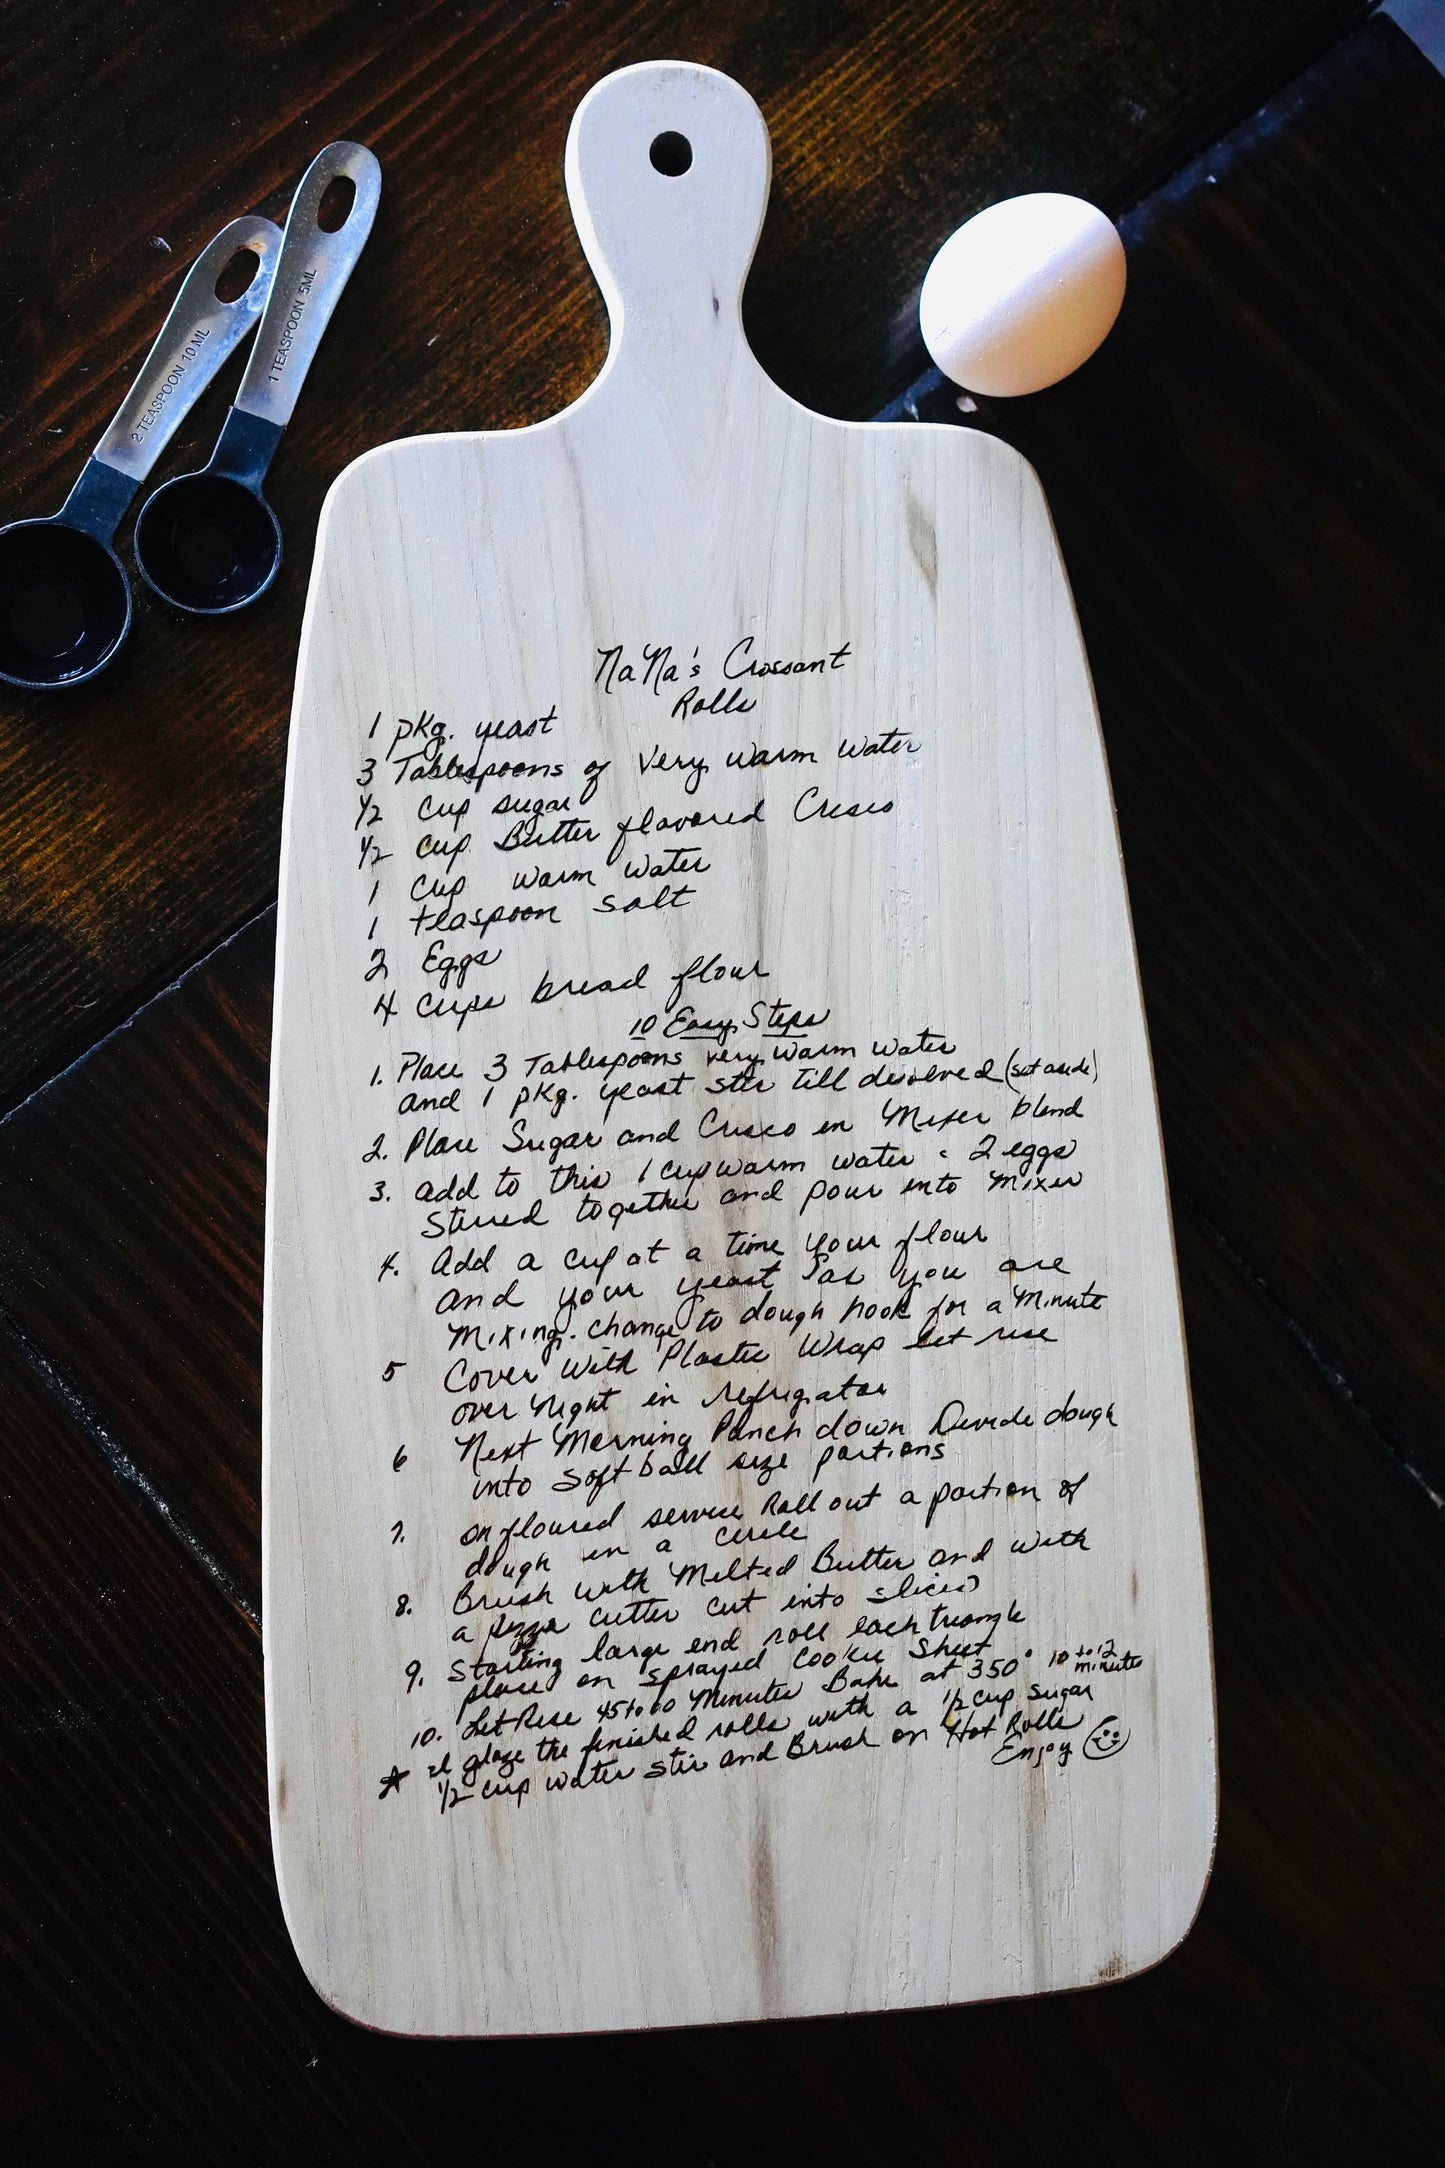 2 TEASPOON 10 ML
1 TEASPOON 5ML
NaNa's Crossant
Rolls
1 pkg. yeast
3 Tablespoons of Very warm water
1/2 cup sugar
1/2 cup Butter flavored Crisco
1 cup warm water
1 teaspoon salt
2 Eggs
4 cups bread flour
10 Easy Steps
1. Place 3 Tablespoons very warm water
and 1 pkg. yeast stir till desolved (set aside)
2. Place Sugar and Crisco in Mixer blend
3. add to this 1 cup warm water 2 eggs
Stired together and pour into Mixer
4. Add a cup at a time your flour
and your yeast as you are
Mixing. change to dough hook for a Minute
5 Cover With Plastic Wrap let rise
over Night in refrigator
6 Next Morning Punch down Devide dough
into soft ball size portions
7. on floured service Roll out a portion of
dough in a circle
8. Brush with Melted Butter and with
a pizza cutter cut into slices
9. Starting large end roll each triangle
place on sprayed Cookie Sheet
10. Let Rise 45 to 60 Minutes Bake at 350° 10 to 12 minutes
☆ I glaze the finished rolls with a 1/2 cup sugar
1/2 cup water stir and Brush on Hot Rolls
Enjoy ☺